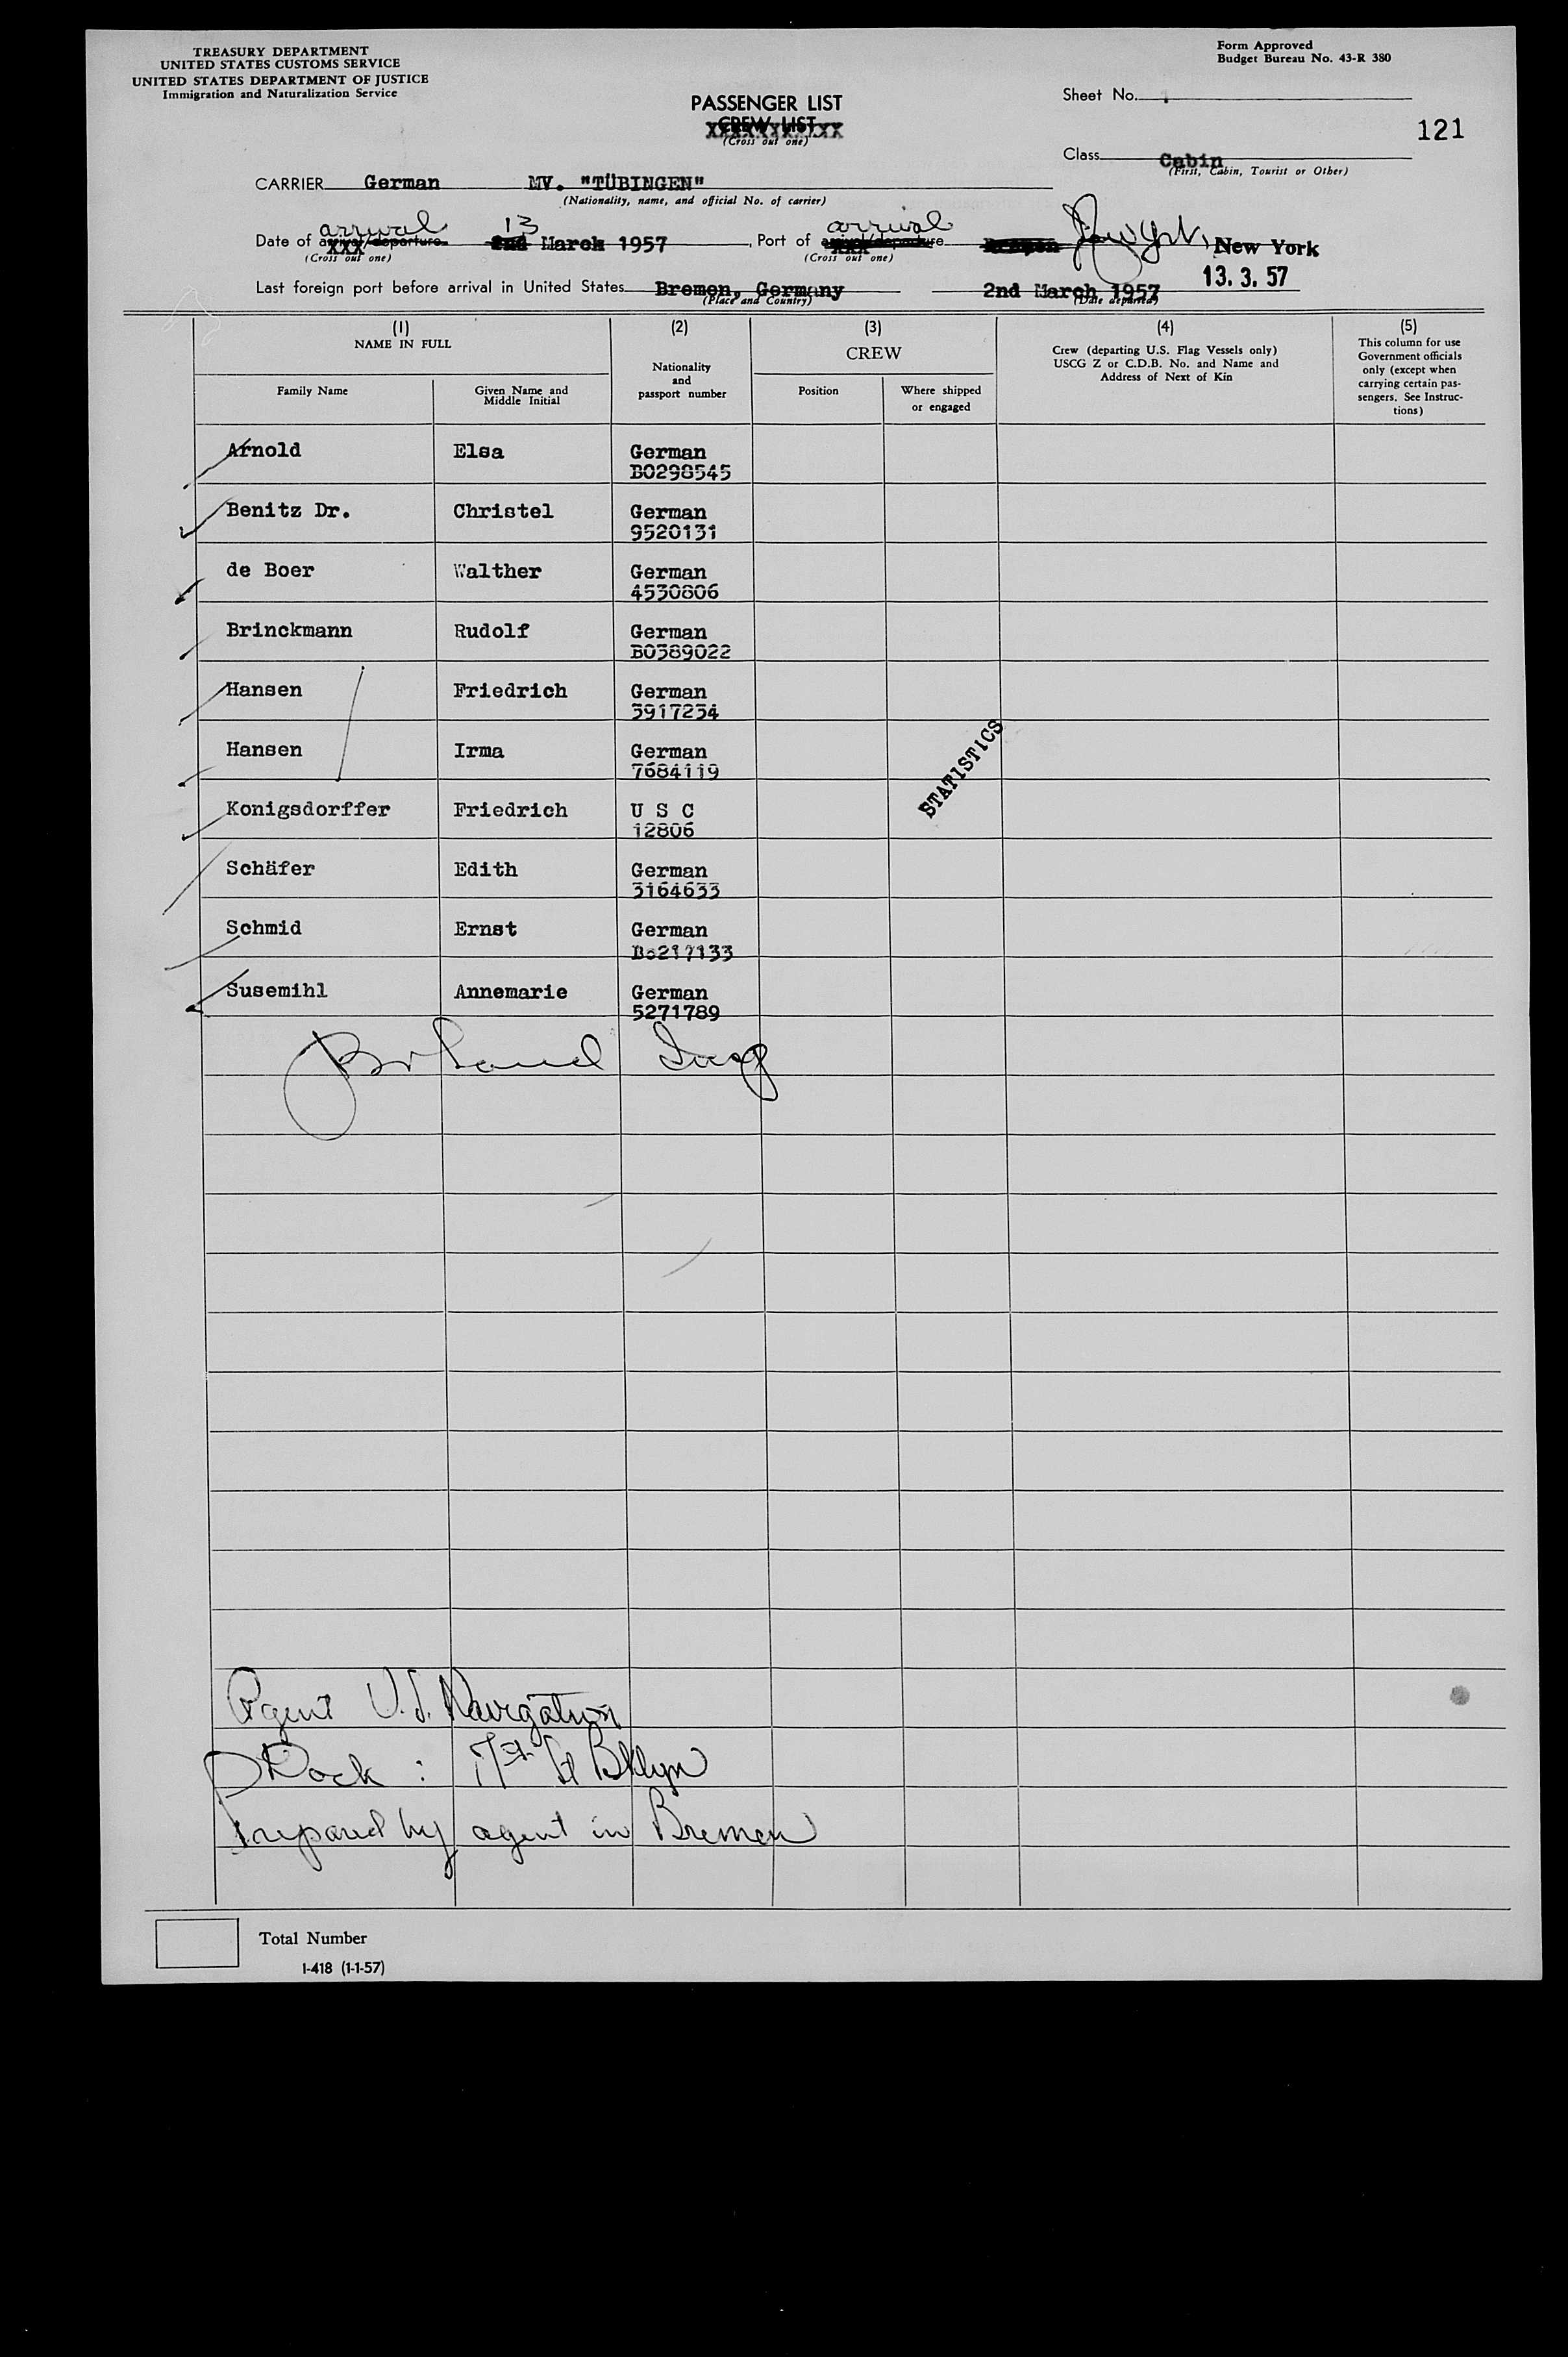 TREASURY DEPARTMENT
UNITED STATES CUSTOMS SERVICE
UNITED STATES DEPARTMENT OF JUSTICE
Immigration and Naturalization Service
Form Approved
Budget Bureau No. 43-R 380
PASSENGER LIST
CREW LIST
(Cross out one)
Sheet No.
121
Class Cabin
(First, Cabin, Tourist or Other)
CARRIER German MV. "TÜBINGEN"
(Nationality, name, and official No. of carrier)
arrival 13 arrival
Date of arrival/departure 2nd March 1957, Port of arrival/departure Bremen New York, New York
(Cross out one) (Cross out one)
13. 3. 57
Last foreign port before arrival in United States Bremen, Germany 2nd March 1957
(Place and Country) (Date departed)
(1) (2) (3) (4) (5)
NAME IN FULL
Family Name
Given Name and Middle Initial
Nationality and passport number
CREW
Position
Where shipped or engaged
Crew (departing U.S. Flag Vessels only)
USCG Z or C.D.B. No. and Name and
Address of Next of Kin
This column for use
Government officials
only (except when
carrying certain pas-
sengers. See Instruc-
tions)
Arnold Elsa German
B0298545
Benitz Dr. Christel German
9520131
de Boer Walther German
4530806
Brinckmann Rudolf German
B0389022
Hansen Friedrich German
3917234
Hansen Irma German
7684119
STATISTICS
Konigsdorffer Friedrich U S C
12806
Schäfer Edith German
3164633
Schmid Ernst German
Bo217133
Susemihl Annemarie German
5271789
Agent U.S. Navigation
Dock : 17th St Bklyn
Prepared by agent in Bremen
Total Number
I-418 (1-1-57)